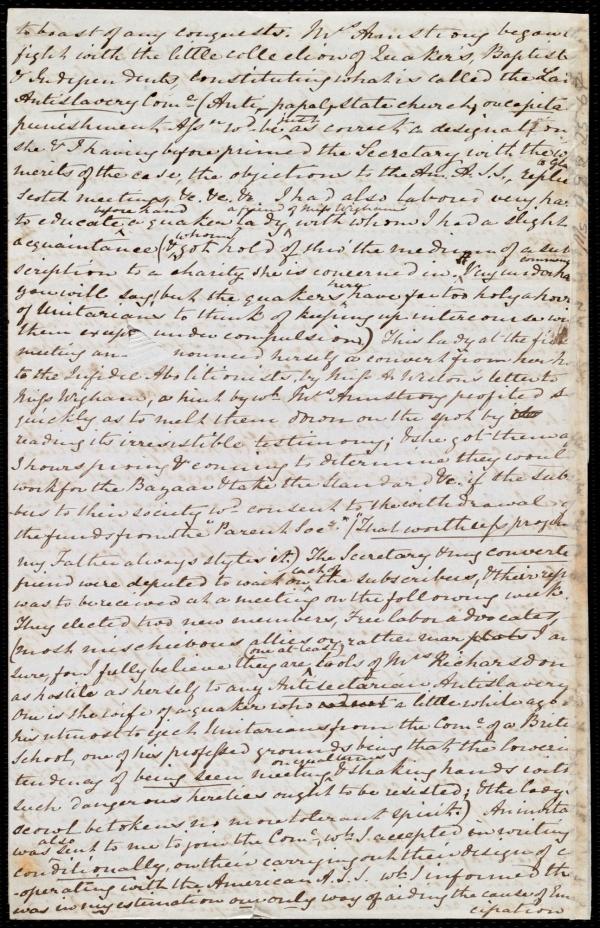 to boast of any conquests. Mrs Armstrong began
fight with the little collection of Quakers, Baptists
& Independents, constituting what is called the
Antislavery Come (Anti, papal, state church, or capital
punishment Assn wd be as correct a designation
she & I having before primed the Secretary with the
to ye
merits of the case, the objections to the Am. A.S.S., replies
Scotch meetings, &c. &c. &c. I had also labored very ha
before hand a friend of Miss Wighams
to educate a quaker lady with whom I had a slight
whom
acquaintance (& got hold of thro' the medium of a sub
scription to a charity she is concerned in. Very
cunning
you will say, but the quakers here have far too holy a horror
of Unitarians to think of keeping up intercourse with
them except under compulsion) This lady at the first
meeting announced herself a convert from her
to the Infidel Abolitionists by Miss A. Weston's letter to
Miss Wigham, a hint by wh. Mrs Armstrong profited so
quickly as to melt them down on the spot by
reading its irresistible testimony; & she got them
hours proing & conning to determine they would
work for the Bazaar & take the Standard &c. if the sub
bers to their society wd consent to the withdrawal
the funds from the "Parent Socy." ("That worthless
my Father always styles it.) The Secretary & my converted
friend were deputed to wait on each of the subscribers, & their rep
was to be received at a meeting on the following week.
They elected two new members, Free labor advocates
(most mischievous allies or rather war I am
sure, for I fully believe they are (one at least) tools of Mrs Richardson
as hostile as herself to any Antisectarian Antislavery
One is the wife of a quaker who a little while ago
his utmost to eject Unitarians from the Come of a British
School, one of his professed grounds being that the lowering
tendency of being seen meeting on equal terms & shaking hands with
such dangerous heretics ought to be resisted; & the Lady
scowl betokens no more tolerant spirit.) An invita
was also sent to me to join the Come, wh. I accepted in writing
conditionally, on their carrying out their design of co
-operating with the American A.S.S. wh. I informed them
was in my estimation our only way of aiding the cause of Eman
cipation